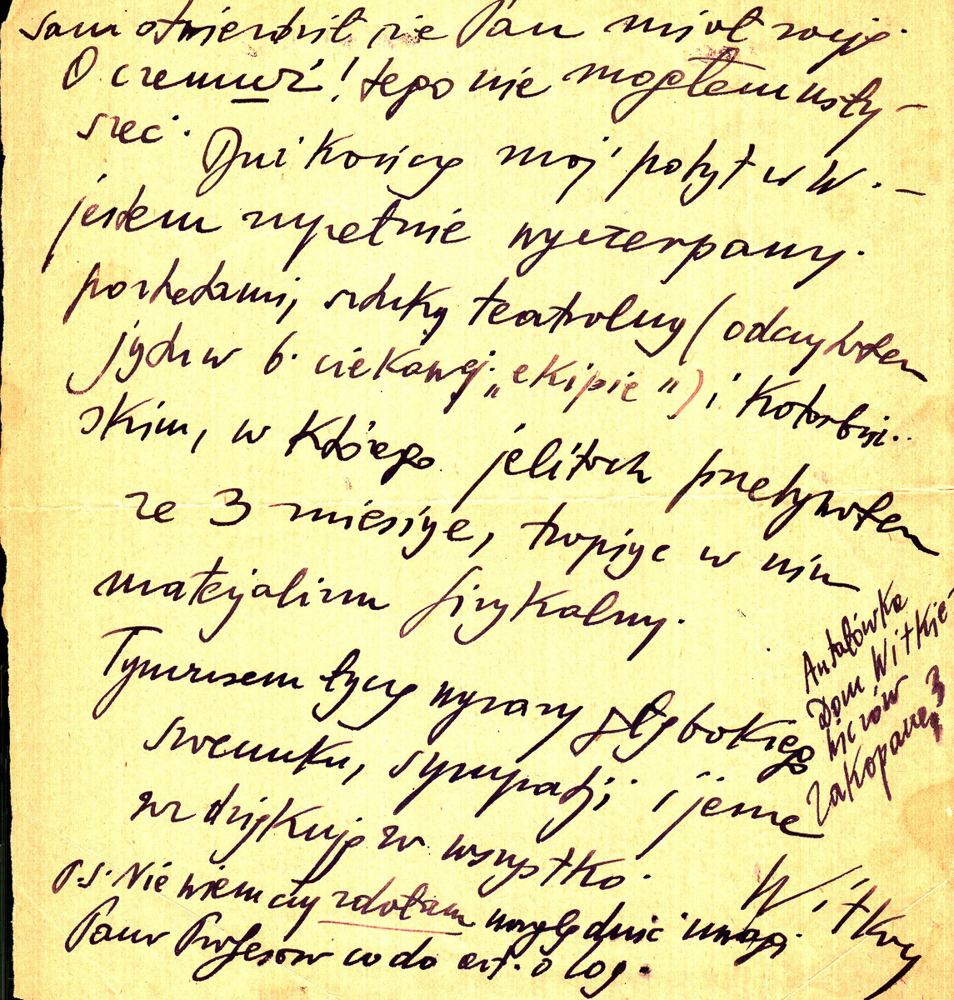 sam stwierdził że Pan miał rację.
O czemuż! tego nie mogłem usły-
szeć. Dziś kończę mój pobyt w W. –
jestem zupełnie wyczerpany.
portretami, sztuką teatralną (odczytałem
ją w b. ciekawej „ekipie") i Kotarbiń-
skim, w którego jelitach przebywałem
ze 3 miesiące, tropiąc w nim
materjalizm fizykalny.
Tymczasem łączę wyrazy głębokiego
szacunku, sympatji i jeszcze
raz dziękuję za wszystko.
Witkacy
P.S. Nie wiem czy zdołam uwzględnić uwagi
Pana Profesora co do art. o log.
Antałówka
Dom Witkie-
wiczów
Zakopane 3